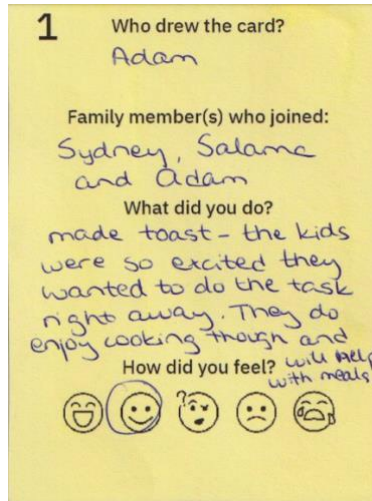 1
Who drew the card?
Adam
Family member(s) who joined:
Sydney, Salama
and Adam
What did you do?
made toast - the kids
were so excited they
wanted to do the task
right away. They do
enjoy cooking though and
How did you feel? will help
with meals
?